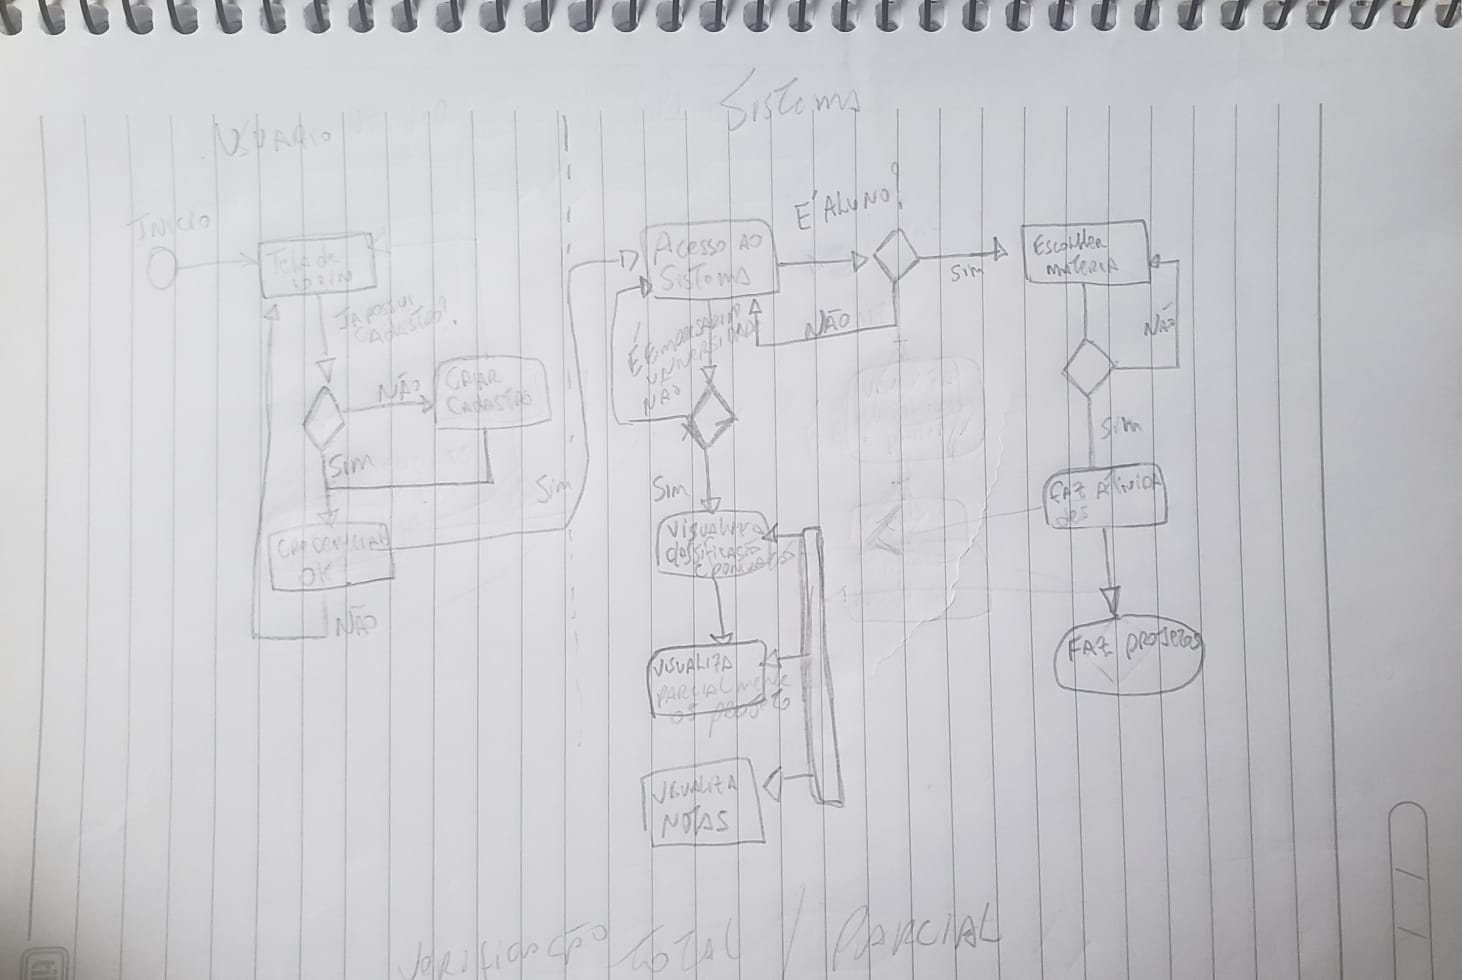 Sistema
Usuario
INICIO
Tela de
LOGIN
JA POSSUI
CADASTRO?
NÃO
CRIAR
CADASTRO
Sim
CREDENCIAL
OK
NÃO
Sim
Acesso AO
Sistema
É ALUNO?
NÃO
Sim
É EMPRESARIO
UNIVERSIDAD
NÃO
Sim
VISUALIZA
classificação
e pontuações
VISUALIZA
PARCIALMENTE
OS projeto
VISUALIZA
NOTAS
Escolher
materia
NÃO
Sim
FAZ ATIVIDA
des
FAZ projetos
Verificação TOTAL / PARCIAL